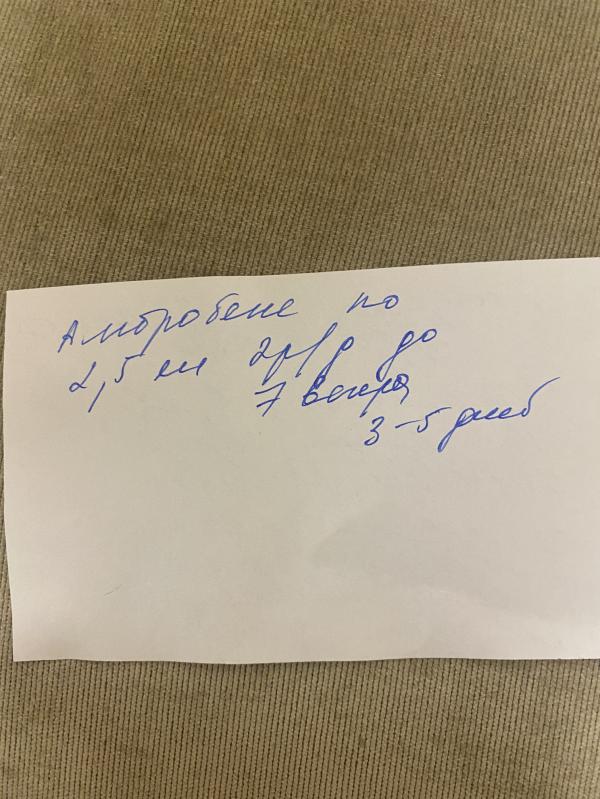 Амбробене по
2,5 мл 2р/д до
7 вечера
3-5 дней